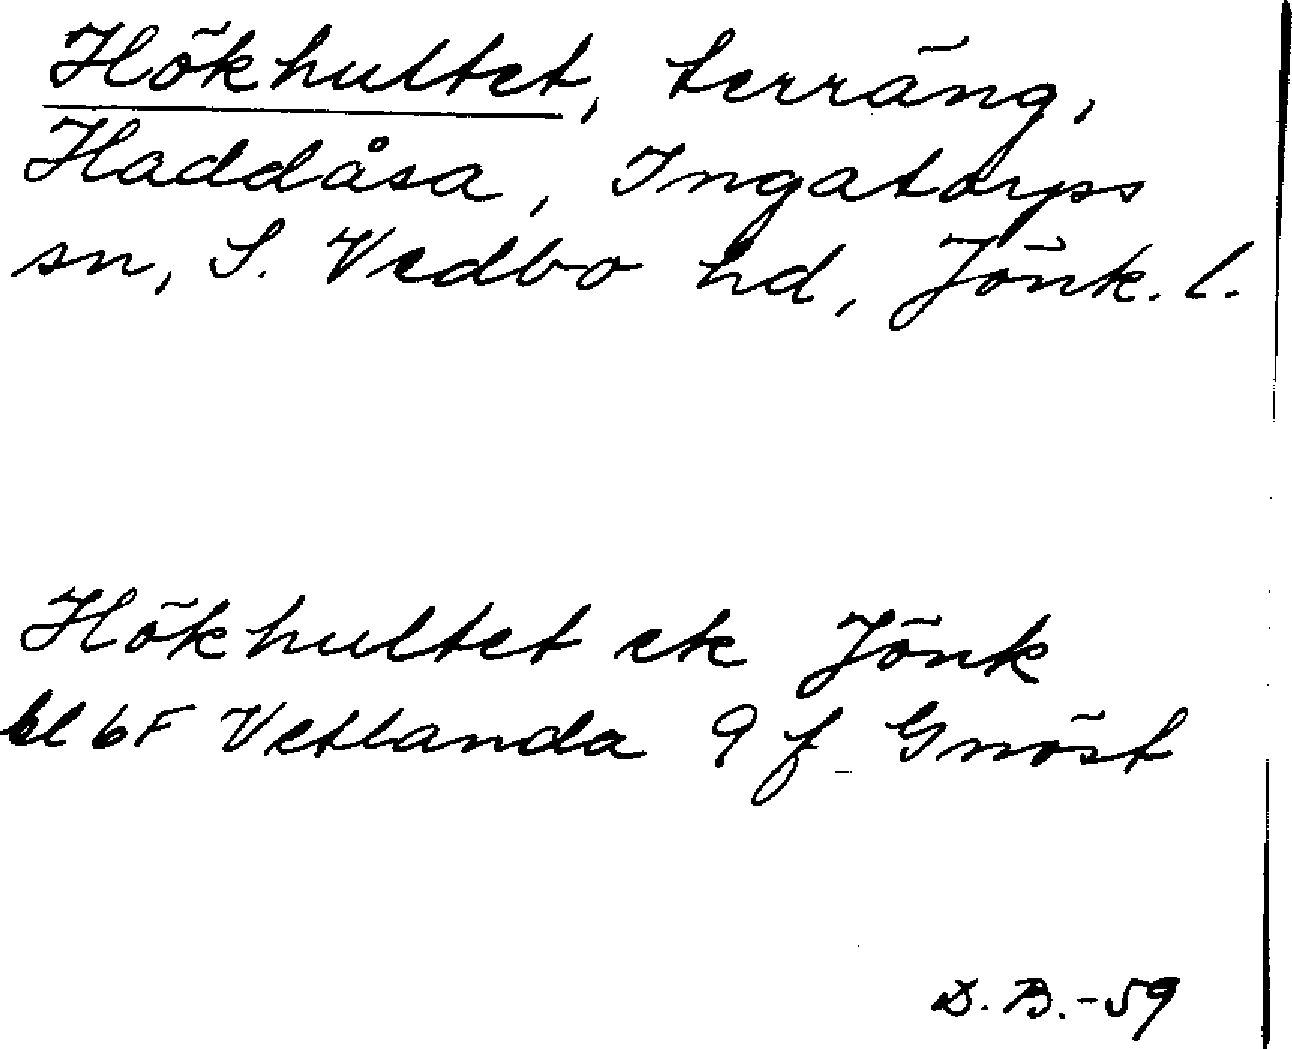 Hökhultet, terräng,
Haddåsa, Ingatorps
sn, S. Vedbo hd, Jönk. l.
Hökhultet ek Jönk
bl 6F Vetlanda 9 f Gnöst
D. B. -59